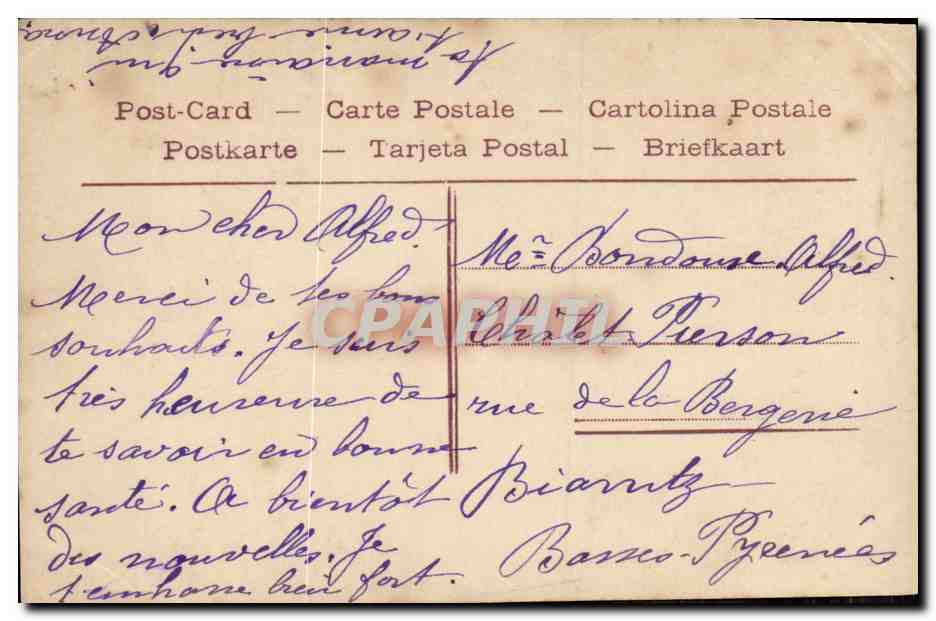 Post-Card — Carte Postale — Cartolina Postale
Postkarte — Tarjeta Postal — Briefkaart
Mon cher Alfred.
Merci de tes bons
souhaits. Je suis
très heureuse de
te savoir en bonne
santé. A bientôt
des nouvelles. Je
t'embrasse bien fort.
ta marraine qui
t'aime
Alfred.
Châlet Pierson
rue de la Bergerie
Biarritz
Basses-Pyrénées
CPAPHIL